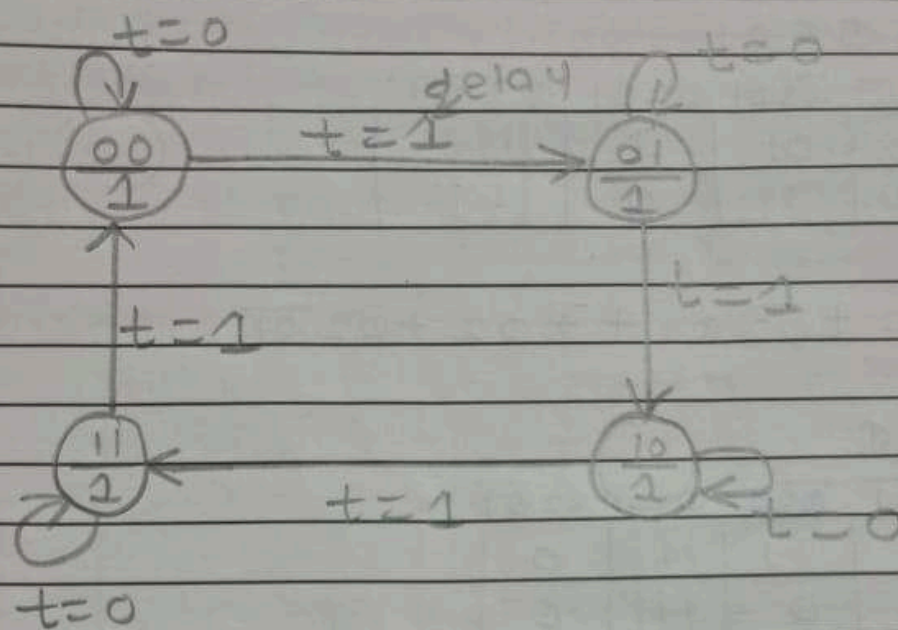 t=0
t=0
delay
t=1
00
1
01
1
t=1
t=1
11
1
10
1
t=1
t=0
t=0